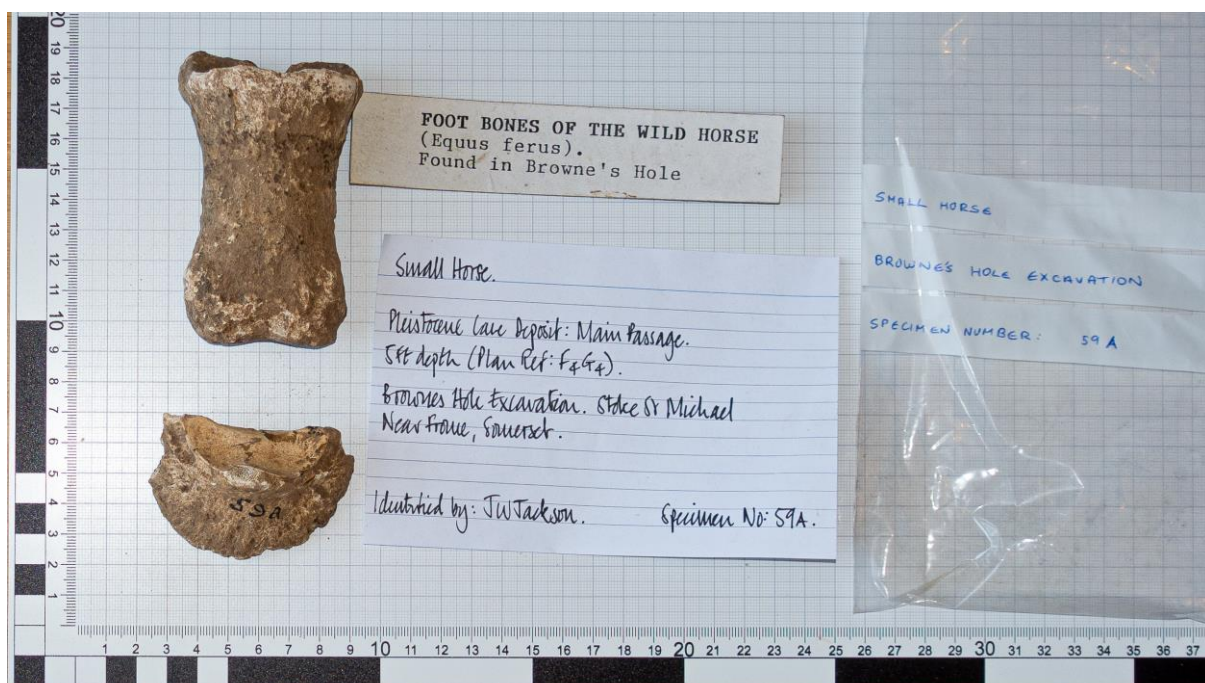 FOOT BONES OF THE WILD HORSE
(Equus ferus).
Found in Browne's Hole
Small Horse.
Pleistocene Cave Deposit: Main Passage.
5ft depth (Plan Ref: F4G4).
Brownes Hole Excavation. Stoke St Michael
Near Frome, Somerset.
Identified by: JW Jackson. Specimen No: 59A.
SMALL HORSE
BROWNE'S HOLE EXCAVATION
SPECIMEN NUMBER: 59 A
59A
20
19
18
17
16
15
14
13
12
11
10
9
8
7
6
5
4
3
2
1
1 2 3 4 5 6 7 8 9 10 11 12 13 14 15 16 17 18 19 20 21 22 23 24 25 26 27 28 29 30 31 32 33 34 35 36 37